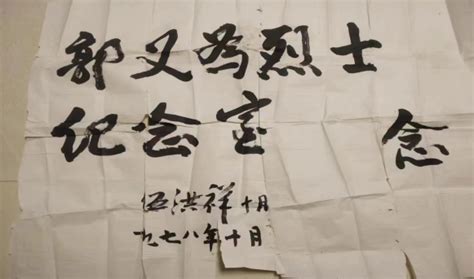 郭又为烈士
纪念室 念
伍洪祥十月
一九七八年十月